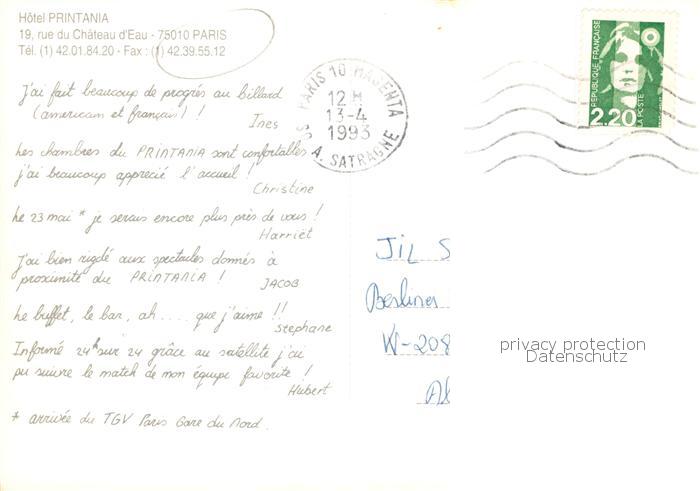 Hôtel PRINTANIA
19, rue du Château d'Eau - 75010 PARIS
Tél. (1) 42.01.84.20 - Fax : (1) 42.39.55.12
J'ai fait beaucoup de progrès au billard
(americain et français) !
Ines
Les chambres du PRINTANIA sont confortables
j'ai beaucoup apprecié l'accueil !
Christine
Le 23 mai * je serais encore plus près de vous !
Harriët
J'ai bien rigolé aux spectacles donnés à
proximité du PRINTANIA !
JACOB
Le buffet, le bar, ah .... que j'aime !!
Stephane
Informé 24h sur 24 grâce au satellite j'ai
pu suivre le match de mon équipe favorite !
Hubert
* arrivée du TGV Paris Gare du Nord.
PARIS 10 MAGENTA
12 H
13-4
1993
A. SATRAGNE
RÉPUBLIQUE FRANÇAISE
LA POSTE
2,20
JIL S
Berliner
W-208
privacy protection
Datenschutz